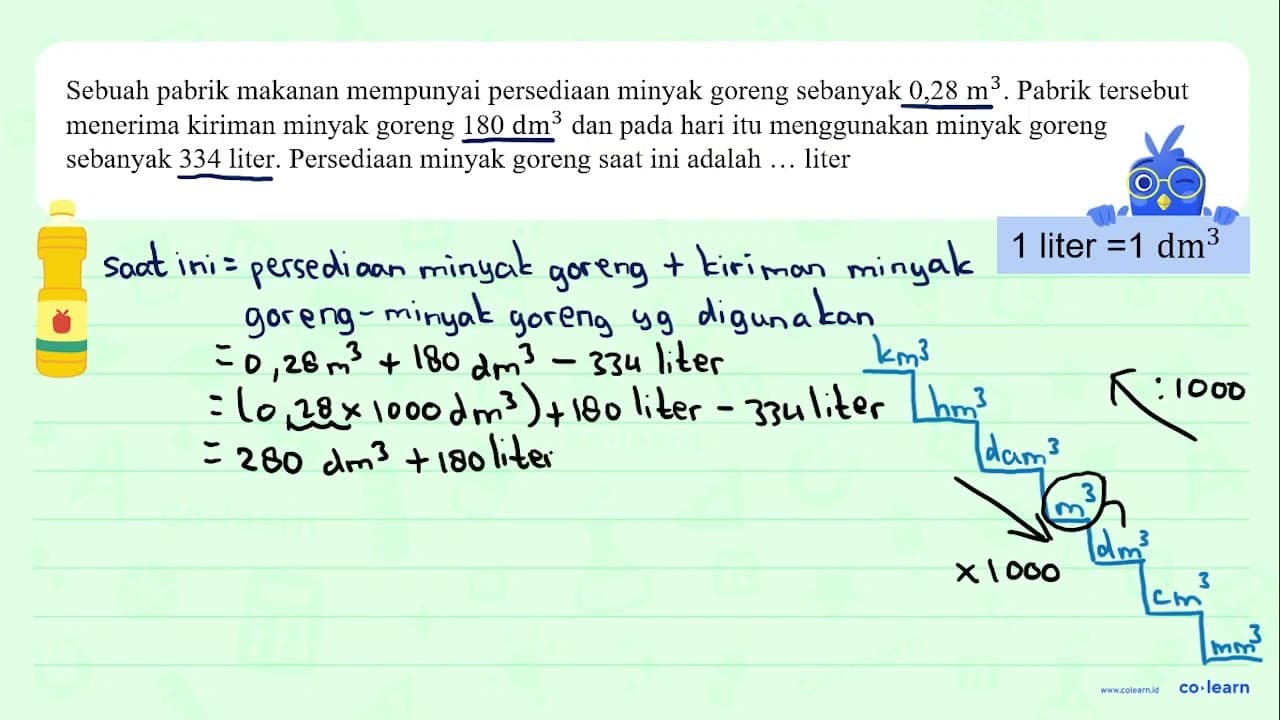 Sebuah pabrik makanan mempunyai persediaan minyak goreng sebanyak 0,28 m³. Pabrik tersebut
menerima kiriman minyak goreng 180 dm³ dan pada hari itu menggunakan minyak goreng
sebanyak 334 liter. Persediaan minyak goreng saat ini adalah … liter
1 liter =1 dm³
saat ini = persediaan minyak goreng + kiriman minyak
goreng - minyak goreng yg digunakan
= 0,28 m³ + 180 dm³ - 334 liter
= (0,28 x 1000 dm³) + 180 liter - 334 liter
= 280 dm³ + 180 liter
km³
hm³
dam³
m³
dm³
cm³
mm³
: 1000
x 1000
www.colearn.id co·learn